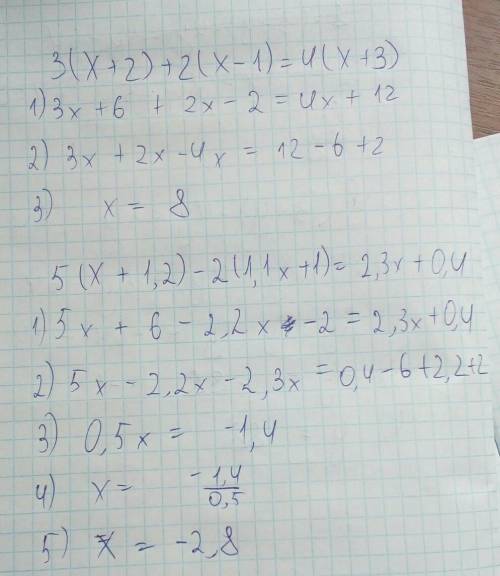 3(x+2)+2(x-1)=4(x+3)
1) 3x+6 + 2x-2=4x+12
2) 3x+2x-4x = 12-6+2
3) x= 8
5(x+1,2)-2(1,1x+1)=2,3x+0,4
1) 5x + 6 - 2,2x -2=2,3x+0,4
2) 5x-2,2x-2,3x=0,4-6+2,2+2
3) 0,5x= -1,4
4) x= -1,4/0,5
5) x = -2,8